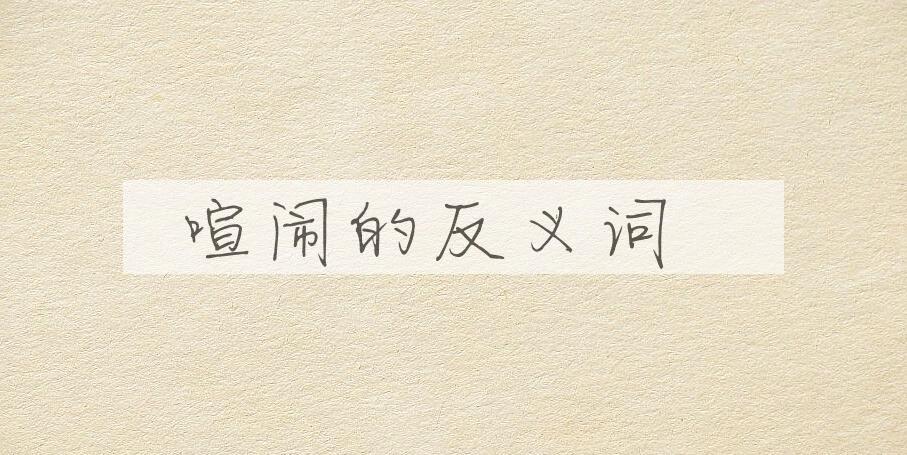 喧闹的反义词